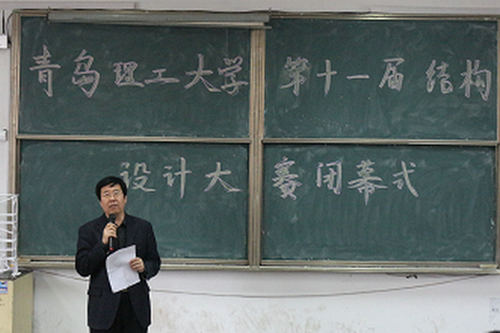 青岛理工大学 第十一届结构
设计大赛闭幕式